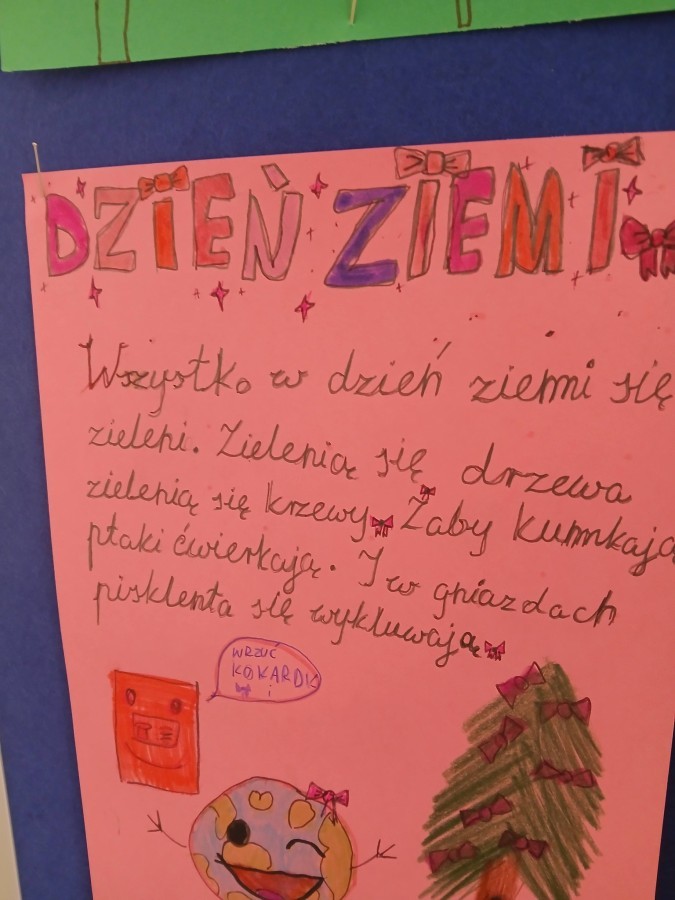 DZIEŃ ZIEMI
Wszystko w dzień ziemi się
zieleni. Zielenią się drzewa
zielenią się krzewy. Żaby kumkają
ptaki ćwierkają. I w gniazdach
pisklenta się wykluwają
WRZUĆ
KOKARDK
i